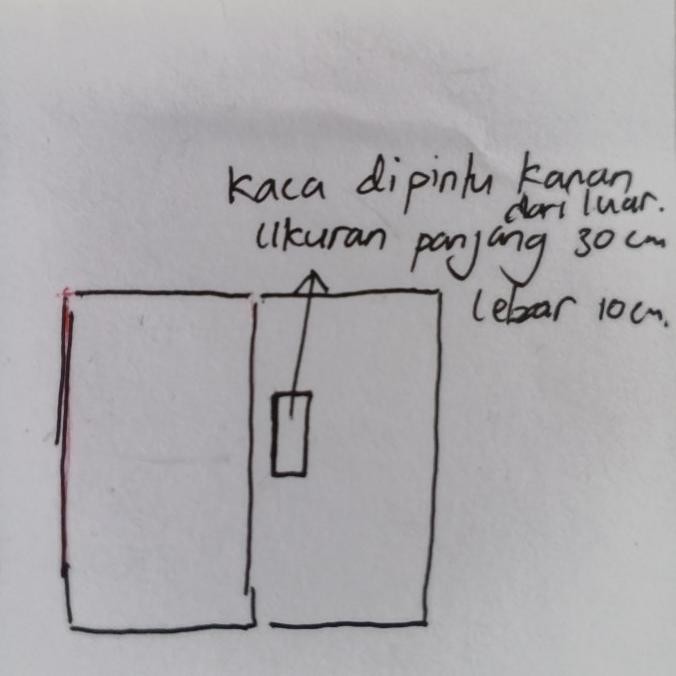 Kaca dipintu Kanan
dari luar.
Ukuran panjang 30 cm
lebar 10 cm.